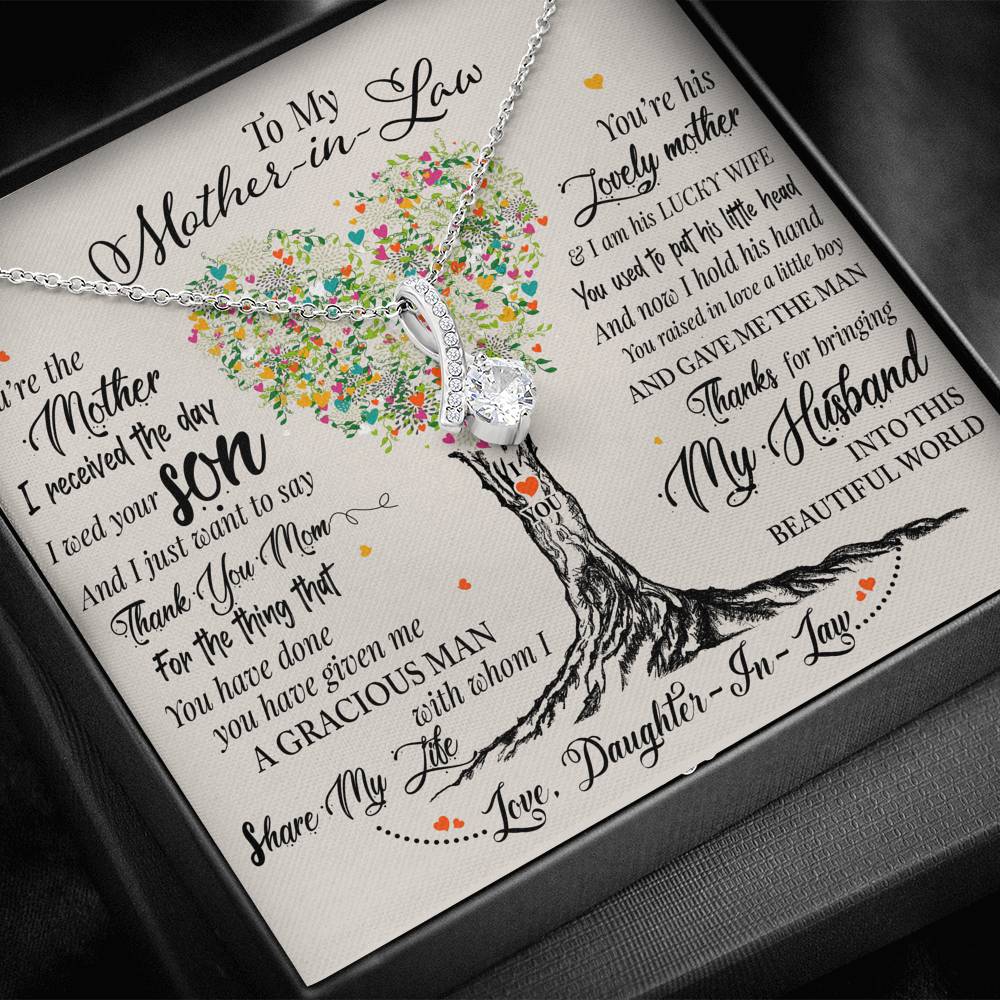 To My
Mother-in-Law
the
Mother
I received the day
I wed your son
And I just want to say
Thank You Mom
For the thing that
You have done
you have given me
A GRACIOUS MAN
with whom I
Share My Life
You're his
Lovely mother
& I am his LUCKY WIFE
You used to pat his little head
And now I hold his hand
You raised in love a little boy
AND GAVE ME THE MAN
Thanks for bringing
My Husband
INTO THIS
BEAUTIFUL WORLD
YOU
Love, Daughter-In-Law